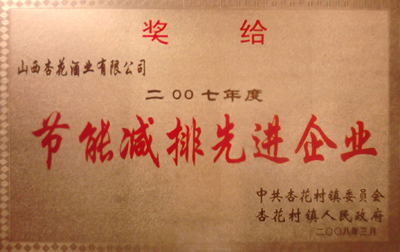 奖给
山西杏花酒业有限公司
二00七年度
节能减排先进企业
中共杏花村镇委员会
杏花村镇人民政府
二00八年三月